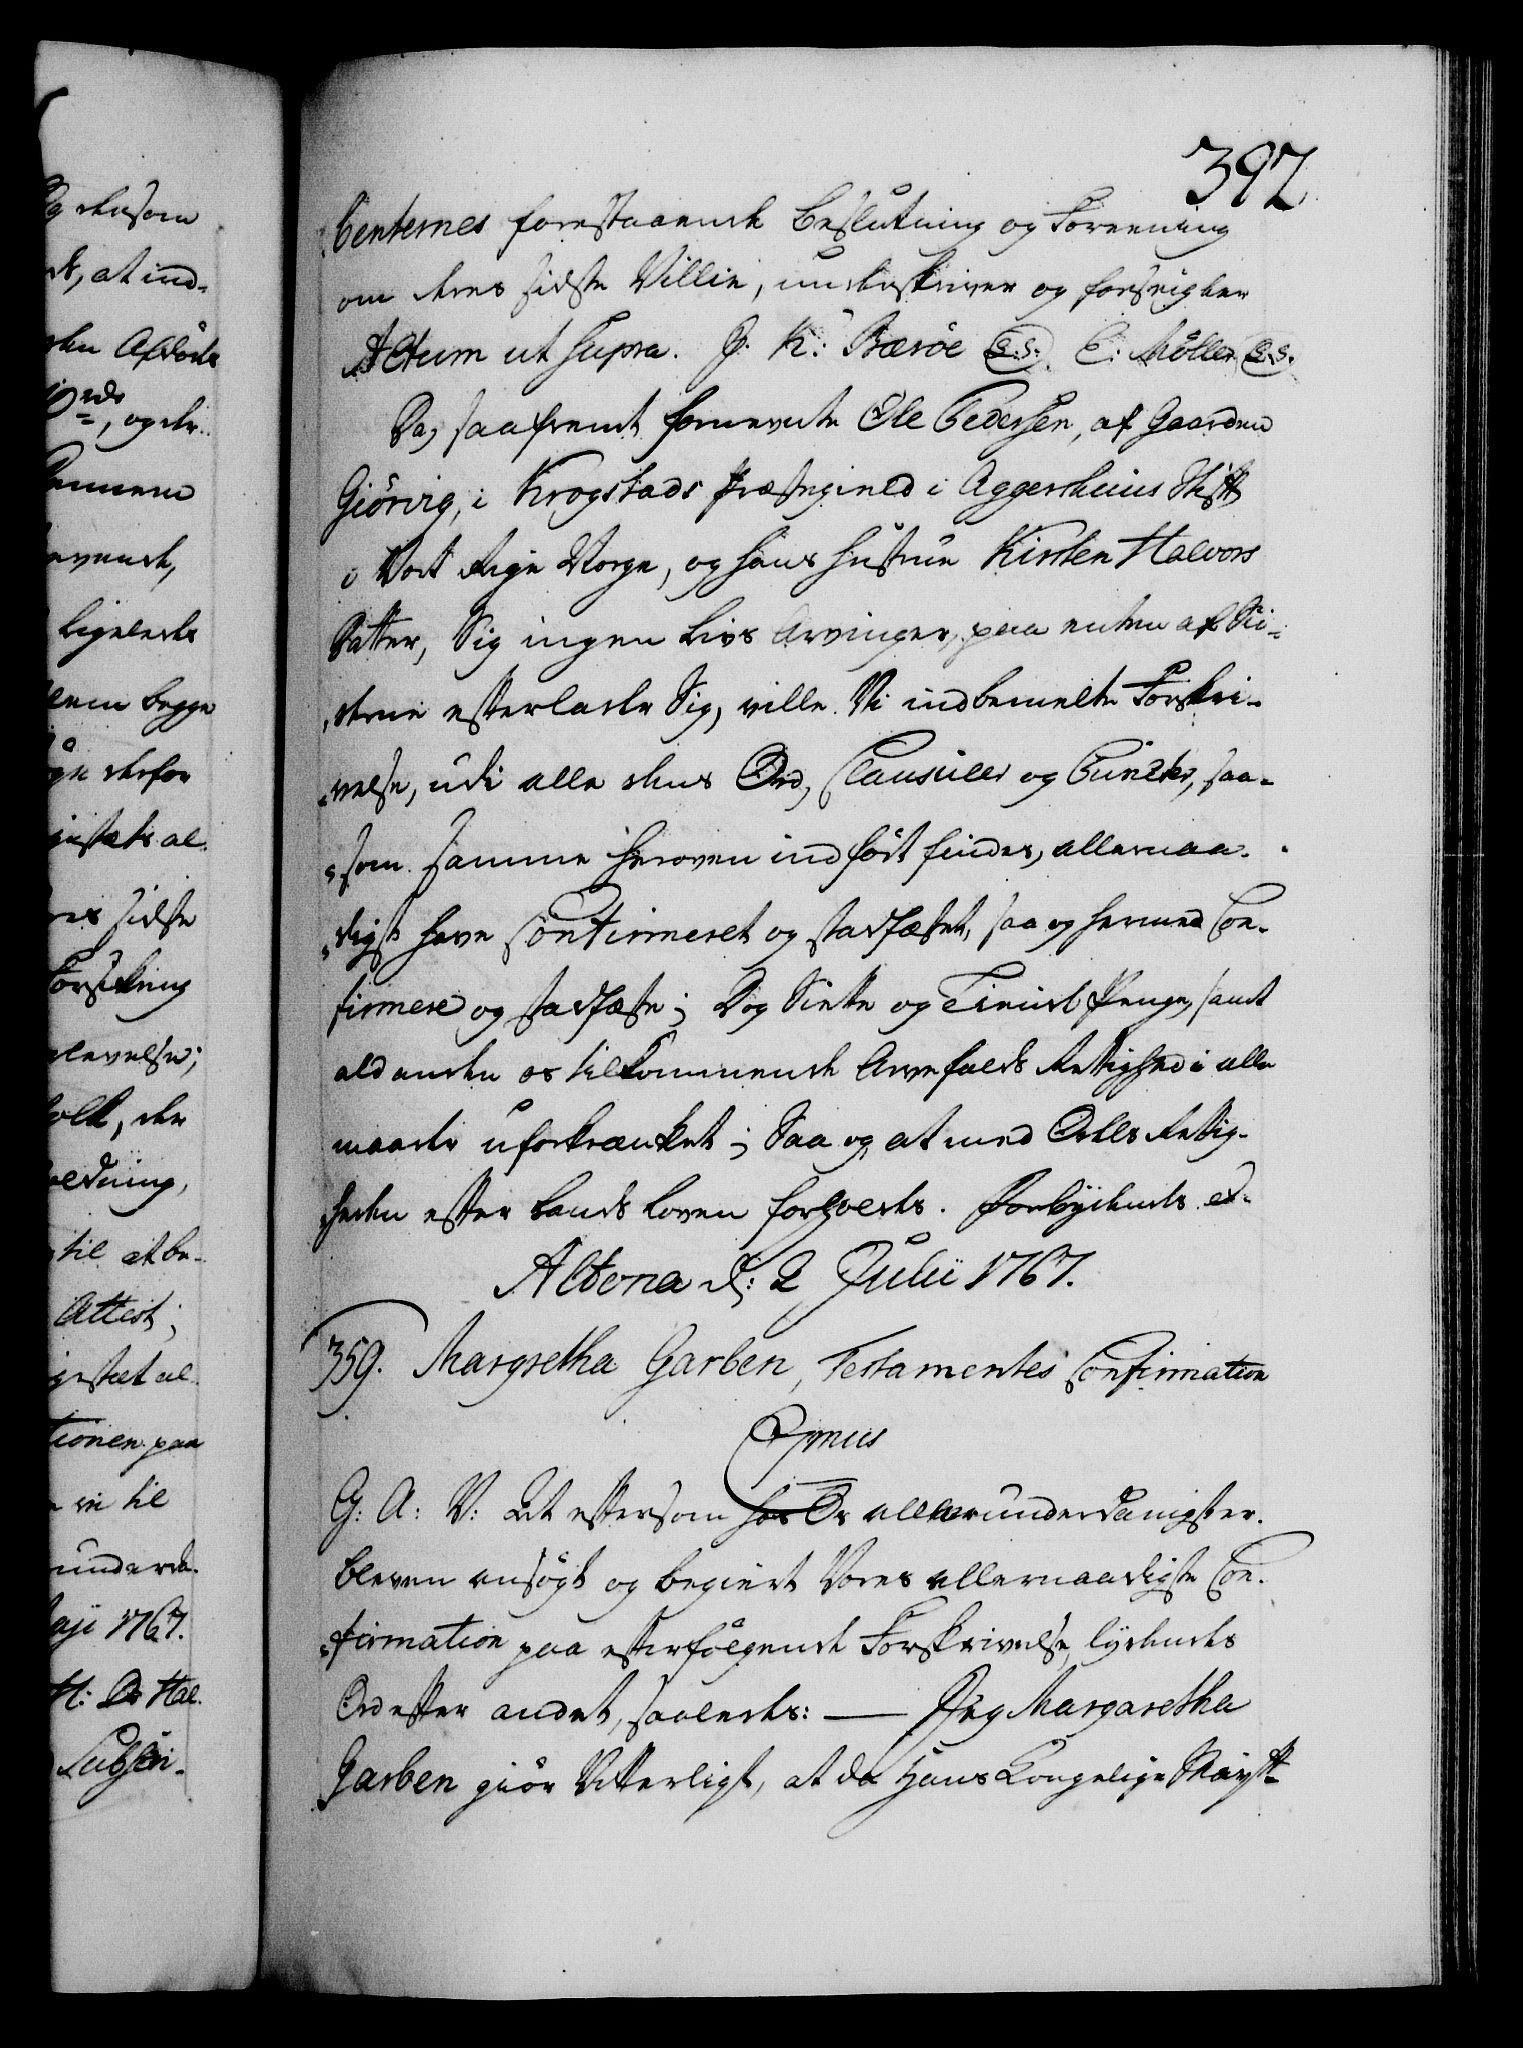 392
benternes forestaaende Beslutning og Foreening
om deres sidste Villie, underskriver og forseigler
Actum ut supra. J. K: Bærøe (L.S.) C: Møller (L.S.)
Da, saafremt fornevnte Ole Pedersen, af Gaarden
Giörvig, i Krogstads Præstegield i Aggershuus Stift
i Vort Rige Norge, og hans Hustrue Kirsten Halvors
Datter, Sig ingen Livs Arvinger, paa enten af Si-
derne efterlader Sig, ville Vi indbemelte Forskri-
velse, udi alle dens Ord, Clausuler og Puncter, saa-
som samme heroven indført findes, allernaa-
digst have Confirmeret og stadfæstet, saa og hermed Con-
firmere og stadfæste; Dog Siette og Tiende Penge, samt
ald anden os tilkommende Arvefalds Rettighed i alle
maader uforkrænket; Saa og at med Odels Rettig-
heden efter Lands Loven forholdes. Forbydendes et-
Altona d: 2 Julii 1767.
359. Margretha Garben, Testamentes Confirmation
G: A: V: at eftersom hos Os allerunderdanigst er
bleven ansøgt og begiert Vores allernaadigste Con-
firmation paa efterfølgende Forskrivelse, lydendes
Ord efter andet, saaledes: — Jeg Margaretha
Garben giør Vitterligt, at da Hans Kongelige Mayst-